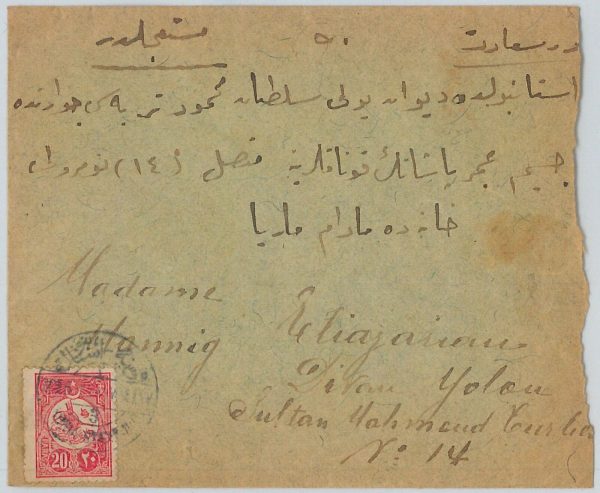 در سعادت ٥٠ مستعجلدر
استانبولده ديوان يولى سلطان محمود تربه‌سى جوارنده
پاشانك قوناقلرينه متصل (١٤) نومرولى
خانه ده مادام ماريا
Madame
Hunnig Eliazarian
Divan Yolou
Sultan Mahmoud Turbe
No 14
20 ٢٠